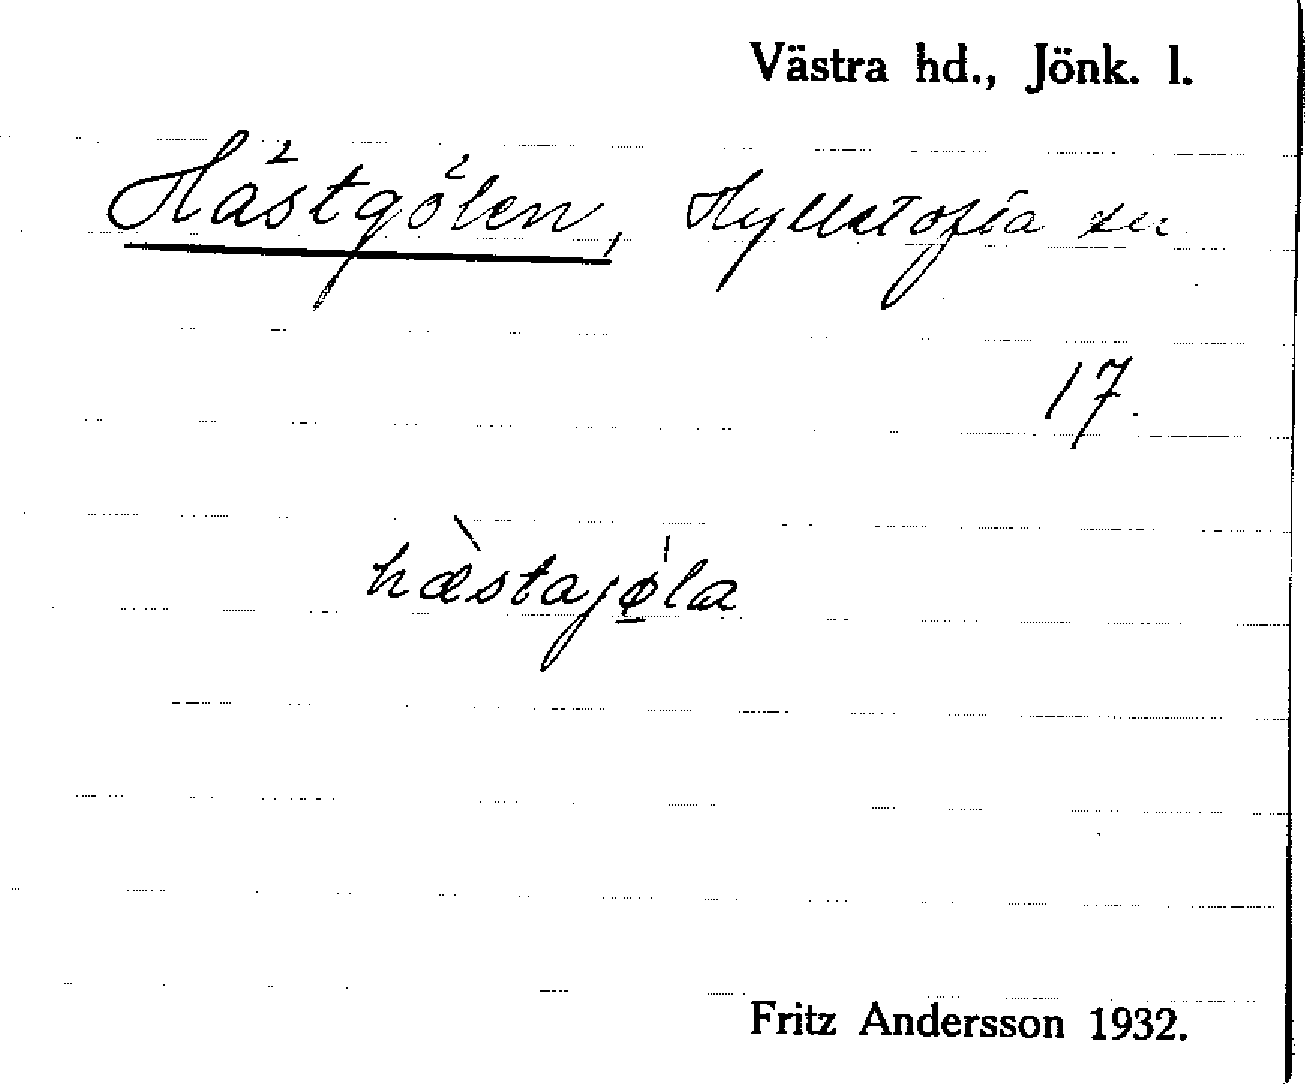 Västra hd., Jönk. l.
Hästgölen, Hylletofta sn
17.
hæ̀stajǿ̲la
Fritz Andersson 1932.